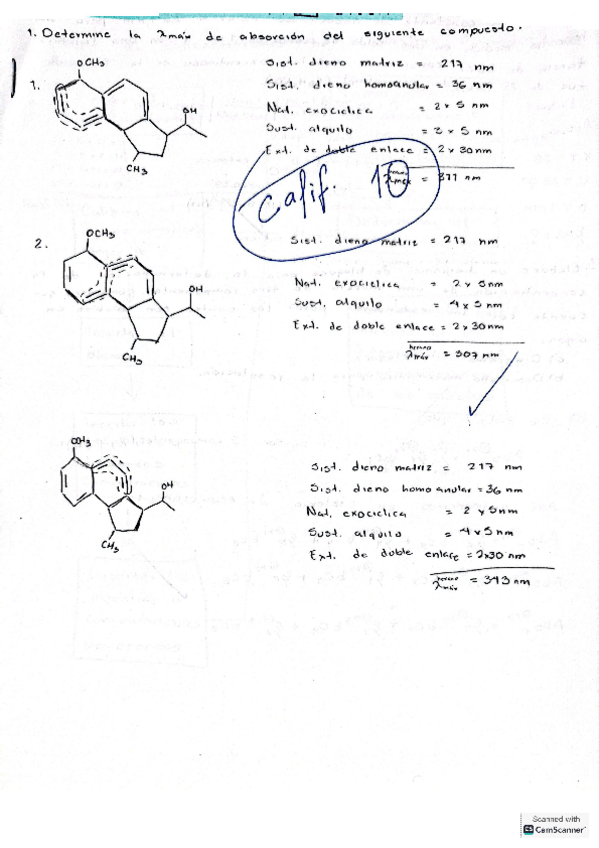 1. Determine la λmáx de absorción del siguiente compuesto.
1.
OCH3
OH
CH3
Sist. dieno matriz = 217 nm
Sist. dieno homoanular = 36 nm
Nat. exocíclica = 2 x 5 nm
Sust. alquilo = 2 x 5 nm
Ext. de doble enlace = 2 x 30 nm
λmáx = nm
Calif. 10
2.
OCH3
OH
CH3
Sist. dieno matriz = 217 nm
Nat. exocíclica = 2 x 5 nm
Sust. alquilo = 4 x 5 nm
Ext. de doble enlace = 2 x 30 nm
hexano
λmáx = 307 nm
OCH3
OH
CH3
Sist. dieno matriz = 217 nm
Sist. dieno homoanular = 36 nm
Nat. exocíclica = 2 x 5 nm
Sust. alquilo = 4 x 5 nm
Ext. de doble enlace = 2x30 nm
hexano
λmáx = 343 nm
Scanned with
CS CamScanner